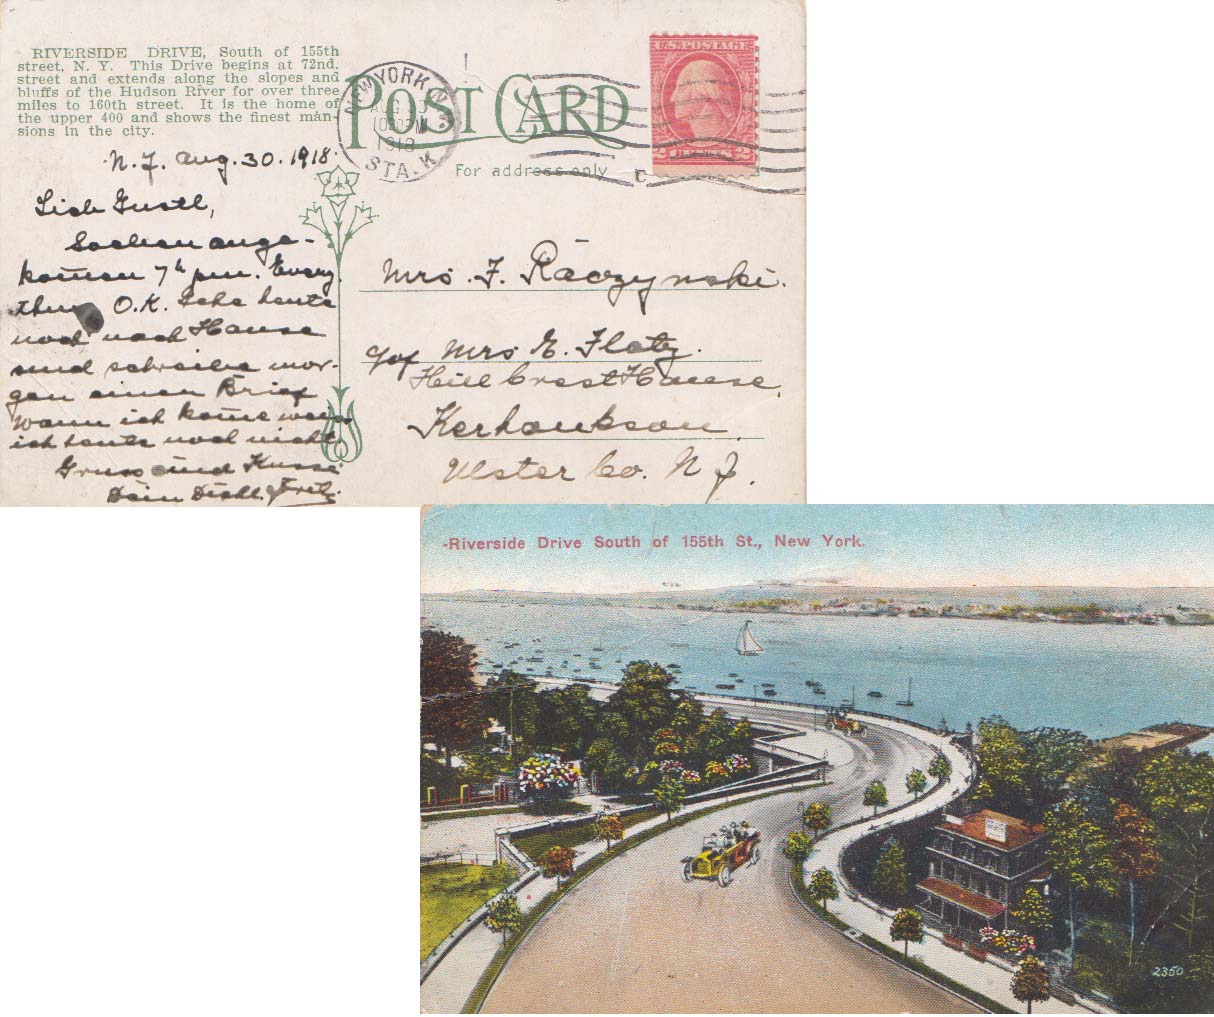 RIVERSIDE DRIVE, South of 155th
street, N. Y. This Drive begins at 72nd.
street and extends along the slopes and
bluffs of the Hudson River for over three
miles to 160th street. It is the home of
the upper 400 and shows the finest man-
sions in the city.
POST CARD
For address only
NEW YORK, N.Y.
AUG 30
1918
STA. K
U.S. POSTAGE
2 CENTS 2
N. Y. Aug. 30. 1918.
Lieb Gustl,
Soeben ange-
komen 7 h pm. Every
thing O.K. Gehe heute
noch nach Hause
und schreibe mor-
gen einen Brief
wann ich kome weiss
ich heute noch nicht
Gruss und Kusse
Dein Dichl. Fritz.
Mrs. F. Raczynski.
c/of Mrs E. Flatz.
Hill Crest House,
Kerhonkson.
Ulster Co. N Y.
-Riverside Drive South of 155th St., New York.
2350